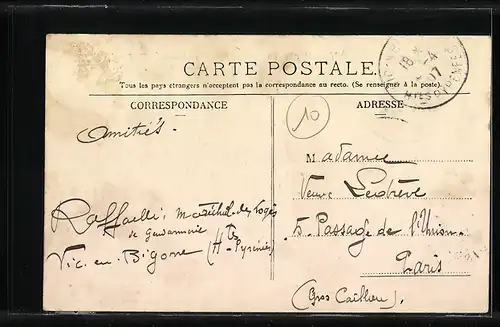 CARTE POSTALE
Tous les pays étrangers n'acceptent pas la correspondance au recto. (Se renseigner à la poste).
CORRESPONDANCE
ADRESSE
10
Amitiés.
Madame
Veuve
5. Passage de l'Union
Paris
(Gros Caillou).
Raffaelli, Maréchal des logis
de Gendarmerie
Vic. en. Bigorre (Htes Pyrénées)
18 -4
07